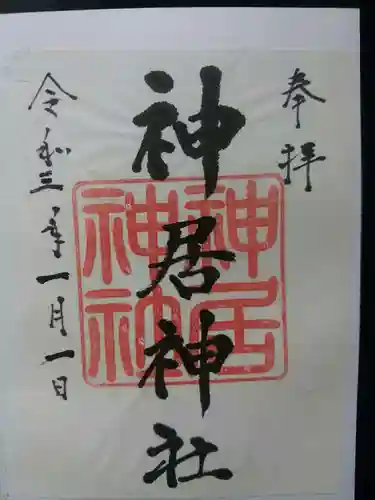 奉拝
神居神社
令和三年一月一日
神居
神社